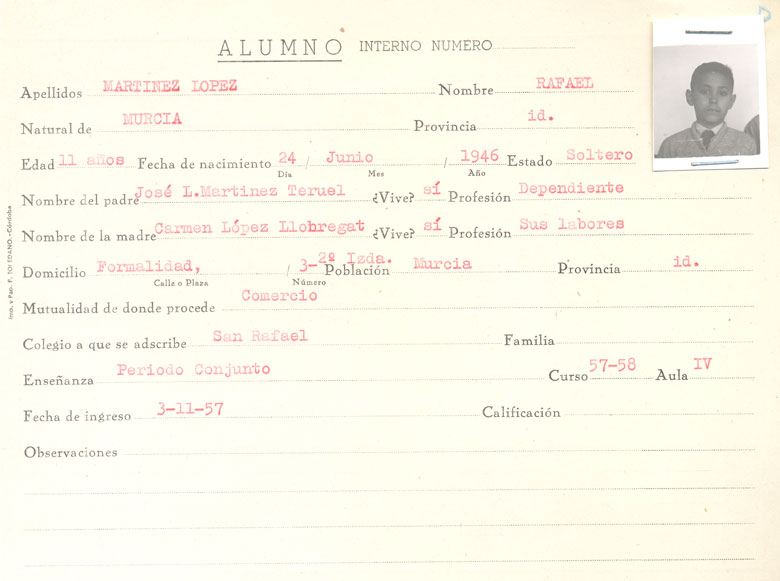 ALUMNO INTERNO NUMERO
Apellidos MARTINEZ LOPEZ Nombre RAFAEL
Natural de MURCIA Provincia id.
Edad 11 años Fecha de nacimiento 24 / Junio / 1946 Estado Soltero
Día Mes Año
Nombre del padre José L.Martinez Teruel ¿Vive? sí Profesión Dependiente
Nombre de la madre Carmen López Llobregat ¿Vive? sí Profesión Sus labores
Domicilio Formalidad, / 3-2º Izda. Población Murcia Provincia id.
Calle o Plaza Número
Mutualidad de donde procede Comercio
Colegio a que se adscribe San Rafael Familia
Enseñanza Periodo Conjunto Curso 57-58 Aula IV
Fecha de ingreso 3-11-57 Calificación
Observaciones